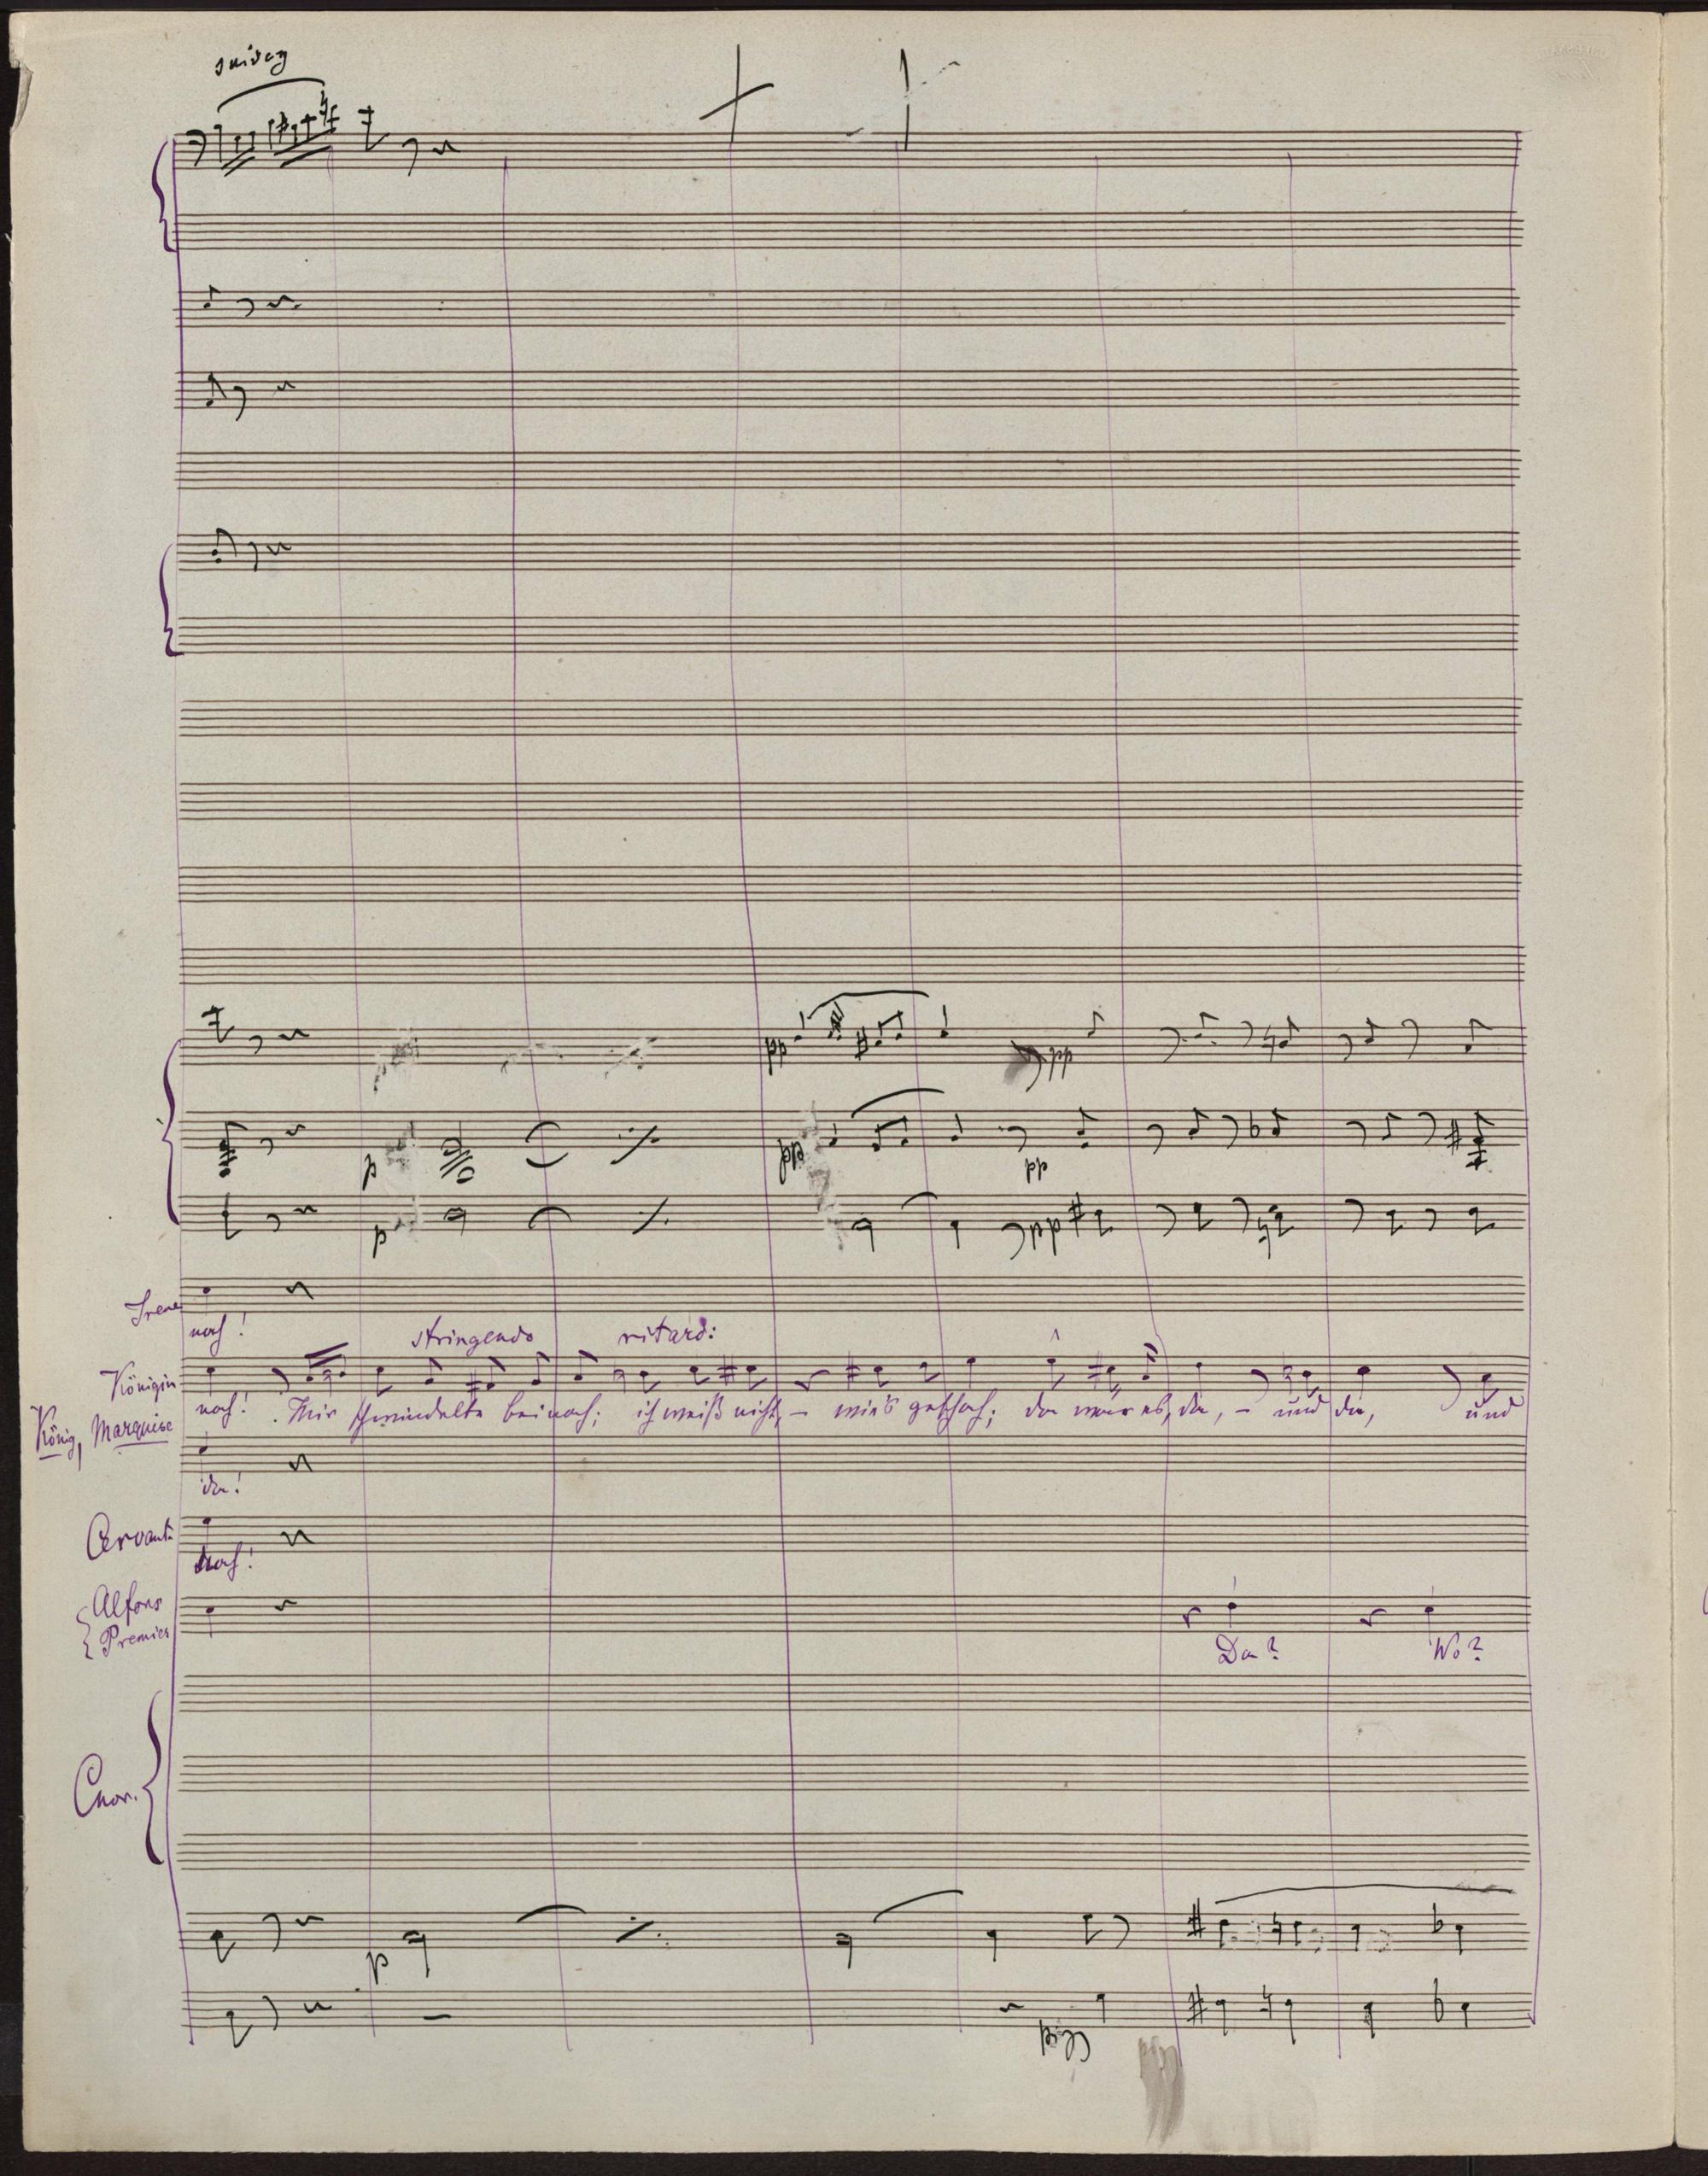 pp
pp
pp
pp
p
p
pp
Irene
noch!
stringendo ritard:
Königin
noch! Mir schwindelte beinach; ich weiß nicht, – wie's geschah; da war es, da, – und da, und
König, Marquise
da!
Cervant.
noch!
Alfons
Premier
Da? Wo?
Chor.
p